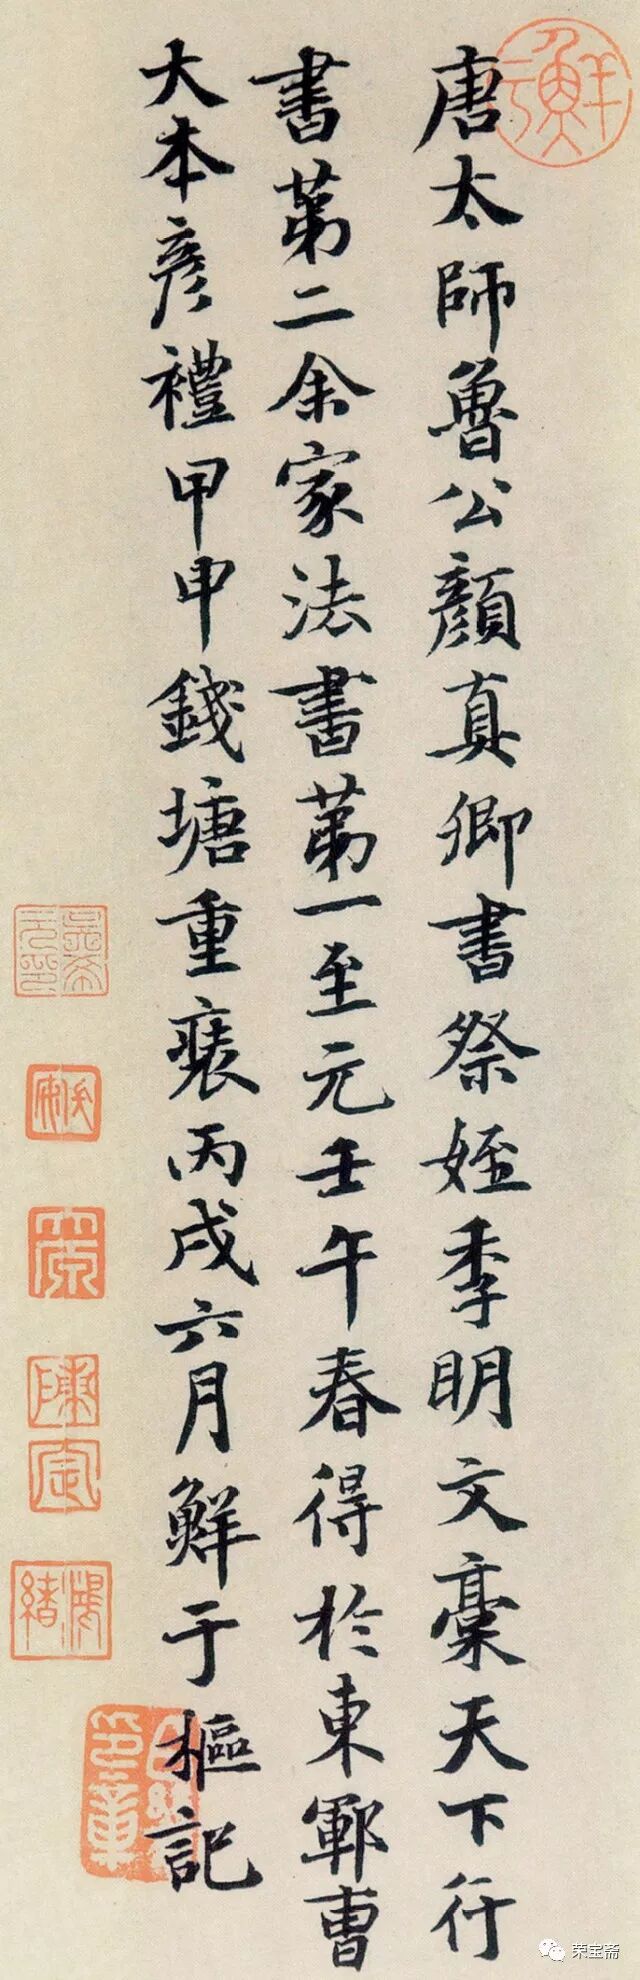 唐太師魯公顏真卿書祭姪季明文稾天下行
書苐二余家法書苐一至元壬午春得於東鄆曹
大本彦禮甲申錢塘重裝丙戌六月鮮于樞記
鮮于
荣宝斋